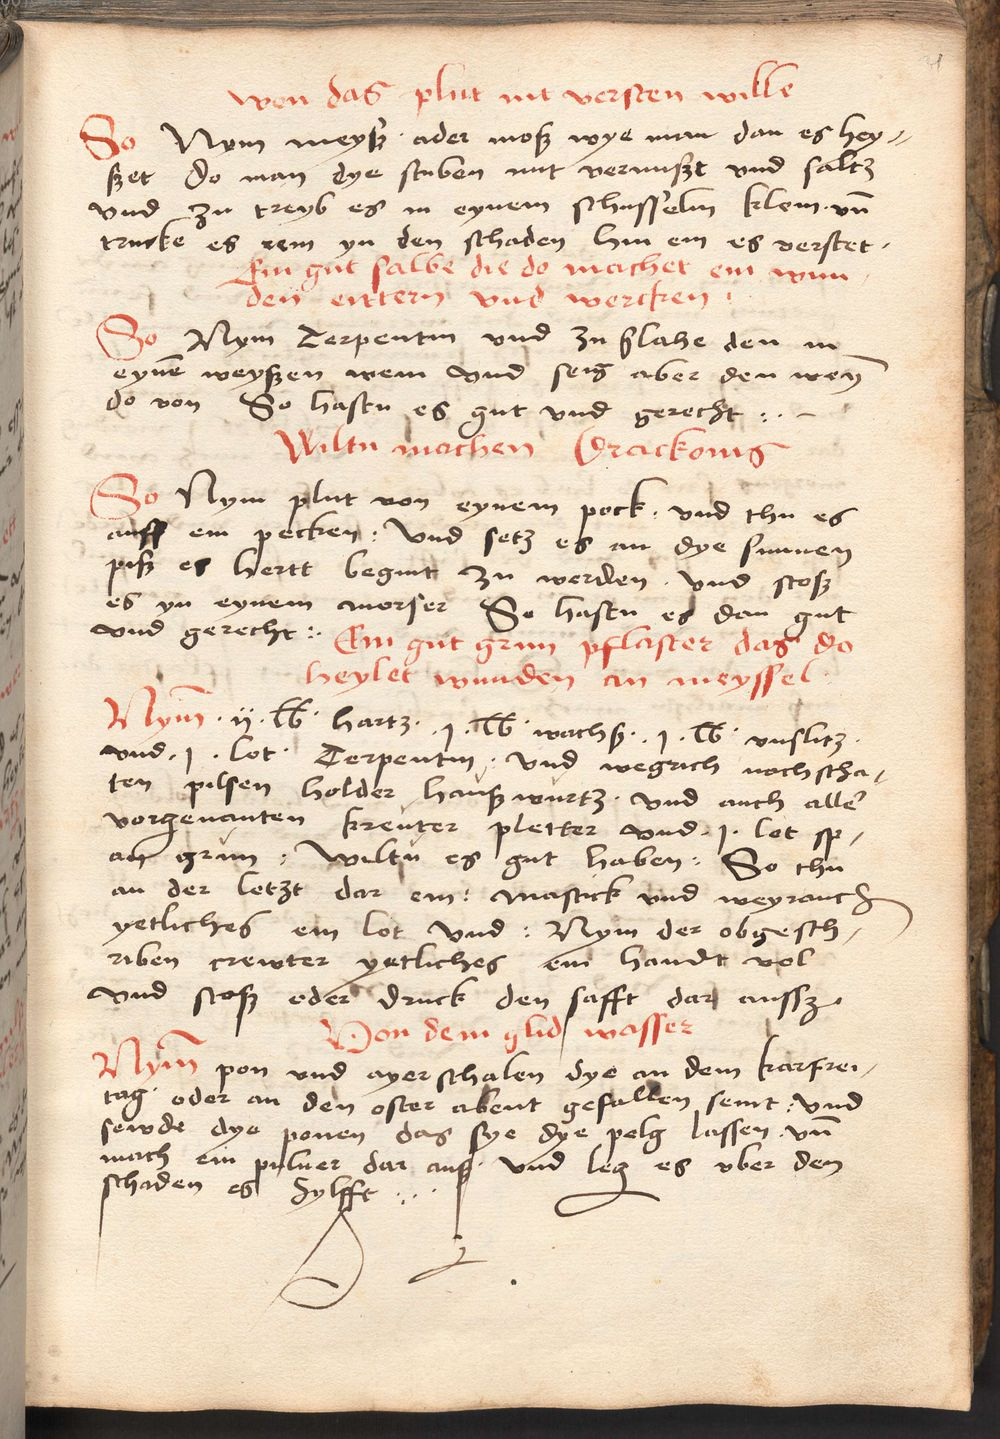 wen das plut nit versten wille
So Nym meysz · ader mosz wye man dan es hey-
szet do man dye stuben mit vermüszt vnd saltz
vnd zu treyb es in eynem schusselin klein · vn̄
trucke es rein yn den schaden hin ein es verstet ·
Ein gut salbe die do machet ein wun
den eittern vnd wercken :
So Nym Terpentin vnd zu slahe den in
eynē weyszen wein vnd seig aber den weyn
do von So hastu es gut vnd gerecht : · –
Wiltu machen Drackonis
So Nym plut von eynem pock · vnd thu es
auff ein pecken : vnd setz es an dye sunnen
pisz es hertt begint zu werden · vnd stosz
es yn eynem morser So hastu es dan gut
vnd gerecht : ·
Ein gut grun pflaster das do
heylet wunden an meyssel ·
Nym̄ · ij · lb · hartz · j · lb · wachs · j · lb · vnslitz ·
vnd · j · lot · Terpentin · vnd wegrich nachscha-
ten pilsen holder hausz wurtz · vnd auch alle
vorgenanten kreuter pletter vnd · j · lot sp-
an grun : Wiltu es gut haben : So thu
an der letzt dar ein : mastick vnd weyrauch
yetliches ein lot vnd : Nym der obgesch-
riben crewter yetliches ein handt vol
vnd stosz oder druck den safft dar aussz ·
Von dem glid wasser
Nym̄ pon vnd ayerschalen dye an dem karfrei-
tag · oder an den oster abent gefallen seint : vnd
sewde dye ponen das sye dye pelg lassen · vn̄
mach ein puluer dar ausz · vnd leg es vber den
schaden es hylfft : · ·